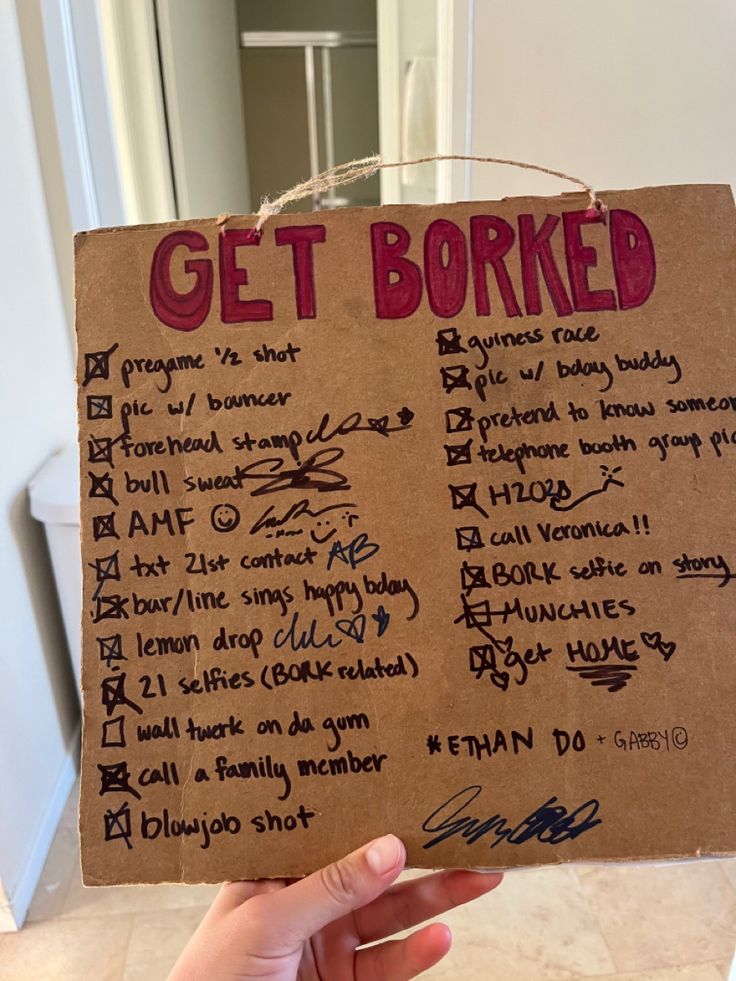 GET BORKED
pregame 1/2 shot
pic w/ bouncer
forehead stamp
bull sweat
AMF
txt 21st contact AB
bar/line sings happy bday
lemon drop
21 selfies (BORK related)
wall twerk on da gum
call a family member
blowjob shot
guiness race
pic w/ bday buddy
pretend to know someon
telephone booth group pic
H2020
call Veronica!!
BORK selfie on story
MUNCHIES
get HOME
*ETHAN DO + GABBY